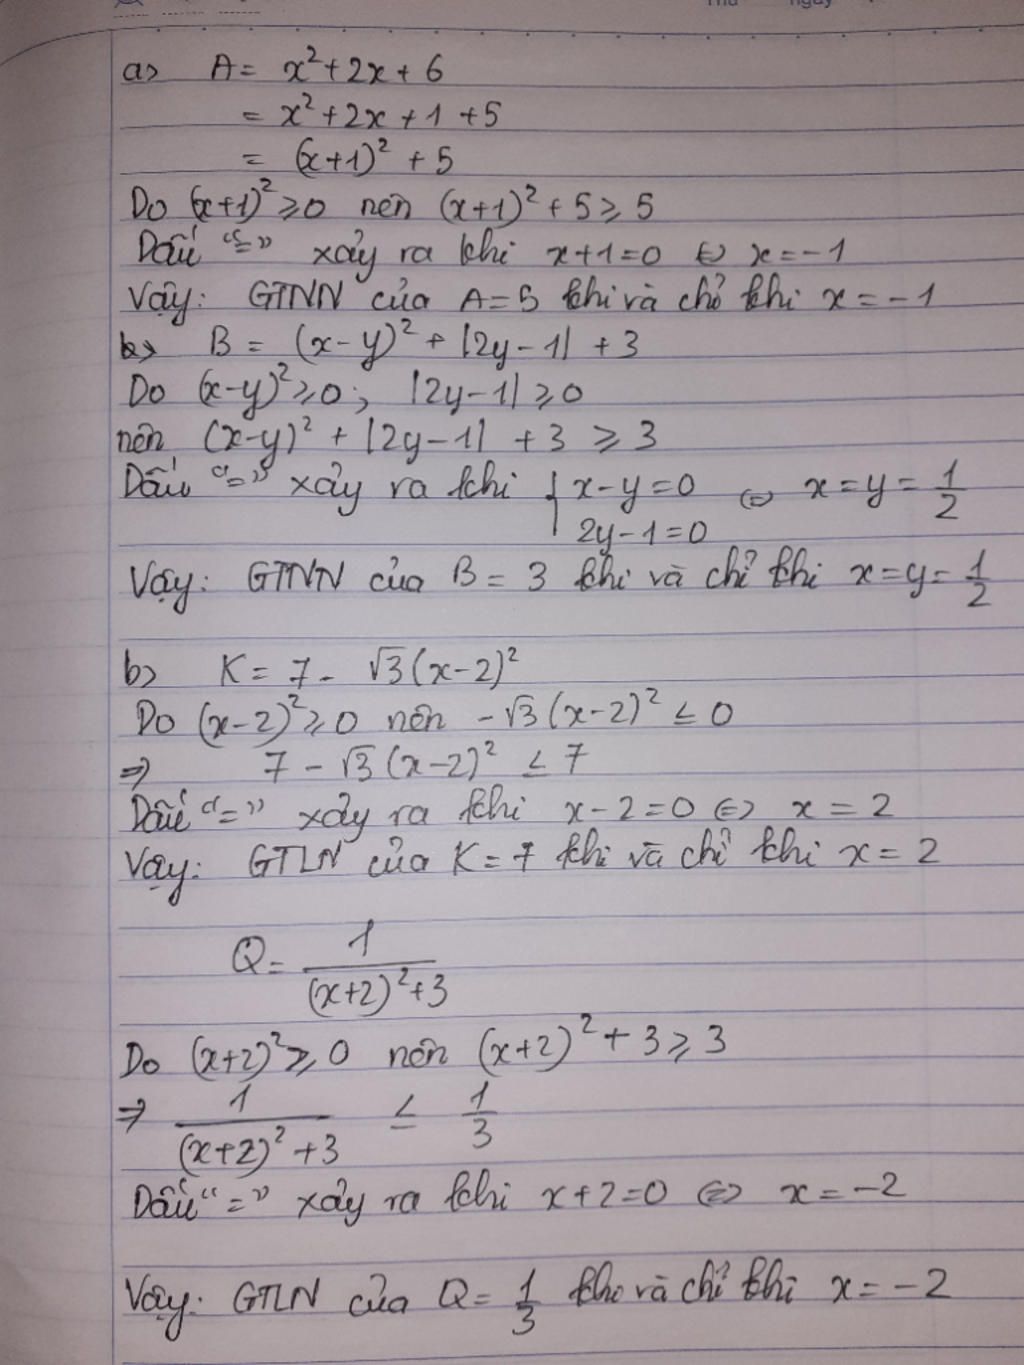 Thứ ngày
a> A = x² + 2x + 6
= x² + 2x + 1 + 5
= (x+1)² + 5
Do (x+1)² ⩾ 0 nên (x+1)² + 5 ⩾ 5
Dấu "=" xảy ra khi x+1=0 ⇔ x=-1
Vậy: GTNN của A=5 khi và chỉ khi x = -1
B = (x-y)² + |2y-1| + 3
Do (x-y)² ⩾ 0 ; |2y-1| ⩾ 0
nên (x-y)² + |2y-1| + 3 ⩾ 3
Dấu "=" xảy ra khi { x-y=0 ⇔ x=y=1/2
2y-1=0
Vậy: GTNN của B = 3 khi và chỉ khi x=y=1/2
b> K = 7 - √3(x-2)²
Do (x-2)² ⩾ 0 nên -√3(x-2)² ≤ 0
⇒ 7 - √3(x-2)² ≤ 7
Dấu "=" xảy ra khi x-2=0 ⇔ x = 2
Vậy: GTLN của K=7 khi và chỉ khi x = 2
Q = 1/((x+2)²+3)
Do (x+2)² ⩾ 0 nên (x+2)² + 3 ⩾ 3
⇒ 1/((x+2)²+3) ≤ 1/3
Dấu "=" xảy ra khi x+2=0 ⇔ x = -2
Vậy: GTLN của Q = 1/3 khi và chỉ khi x = -2